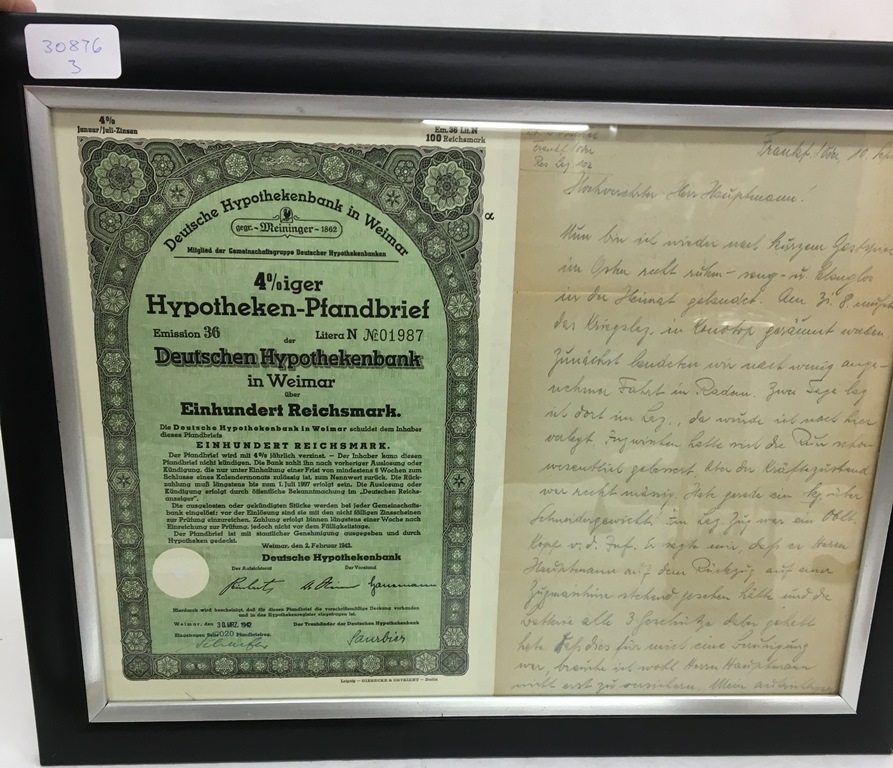 30876
3
4%
Januar/Juli-Zinsen
Em. 36 Lit. N
100 Reichsmark
Deutsche Hypothekenbank in Weimar
gegr. - Meininger - 1862
Mitglied der Gemeinschaftsgruppe Deutscher Hypothekenbanken
4%iger
Hypotheken-Pfandbrief
Emission 36 der Litera N № 01987
Deutschen Hypothekenbank
in Weimar
über
Einhundert Reichsmark.
Die Deutsche Hypothekenbank in Weimar schuldet dem Inhaber
dieses Pfandbriefs
EINHUNDERT REICHSMARK.
Der Pfandbrief wird mit 4% jährlich verzinst. — Der Inhaber kann diesen
Pfandbrief nicht kündigen. Die Bank zahlt ihn nach vorheriger Auslosung oder
Kündigung, die nur unter Einhaltung einer Frist von mindestens 6 Wochen zum
Schlusse eines Kalendermonats zulässig ist, zum Nennwert zurück. Die Rück-
zahlung muß längstens bis zum 1. Juli 1997 erfolgt sein. Die Auslosung oder
Kündigung erfolgt durch öffentliche Bekanntmachung im „Deutschen Reichs-
anzeiger".
Die ausgelosten oder gekündigten Stücke werden bei jeder Gemeinschafts-
bank eingelöst; vor der Einlösung sind sie mit den nicht fälligen Zinsscheinen
zur Prüfung einzureichen. Zahlung erfolgt binnen längstens einer Woche nach
Einreichung zur Prüfung, jedoch nicht vor dem Fälligkeitstage.
Der Pfandbrief ist mit staatlicher Genehmigung ausgegeben und durch
Hypotheken gedeckt.
Weimar, den 2. Februar 1942.
Deutsche Hypothekenbank
Der Aufsichtsrat Der Vorstand
Hierdurch wird bescheinigt, daß für diesen Pfandbrief die vorschriftsmäßige Deckung vorhanden
und in das Hypothekenregister eingetragen ist.
Weimar, den 30. MRZ. 1942 Der Treuhänder der Deutschen Hypothekenbank
Eingetragen Seite 020 Pfandbriefbuch.
Leipzig — GIESECKE & DEVRIENT — Berlin
α
Frankf./Oder 10.
Res. Laz. 102
Hochverehrter Herr Hauptmann!
Nun bin ich wieder nach kurzem
im Osten recht ruhm- sang- u. klanglos
in der Heimat gelandet. Am 31. 8. mußte
das Kriegslaz. in Konotop geräumt werden
Zunächst landeten wir nach wenig ange-
nehmer Fahrt in Radom. Zwei Tage lag
ich dort im Laz., da wurde ich nach hier
verlegt. Inzwischen hatte sich die Ruhr schon
wesentlich gebessert. Aber der Kräftezustand
war recht mässig. Habe gerade ein kg über
Schneidergewicht. Im Laz. Zug war ein Oblt.
v. d. Inf. Er sagte mir, daß er Herrn
Hauptmann auf dem Rückzug auf einer
Zugmaschine stehend gesehen hätte und die
Batterie alle 3 Geschütze dabei gehabt
hätte. Daß dies für mich eine Beruhigung
war, brauche ich wohl Herrn Hauptmann
nicht erst zu versichern. Mein